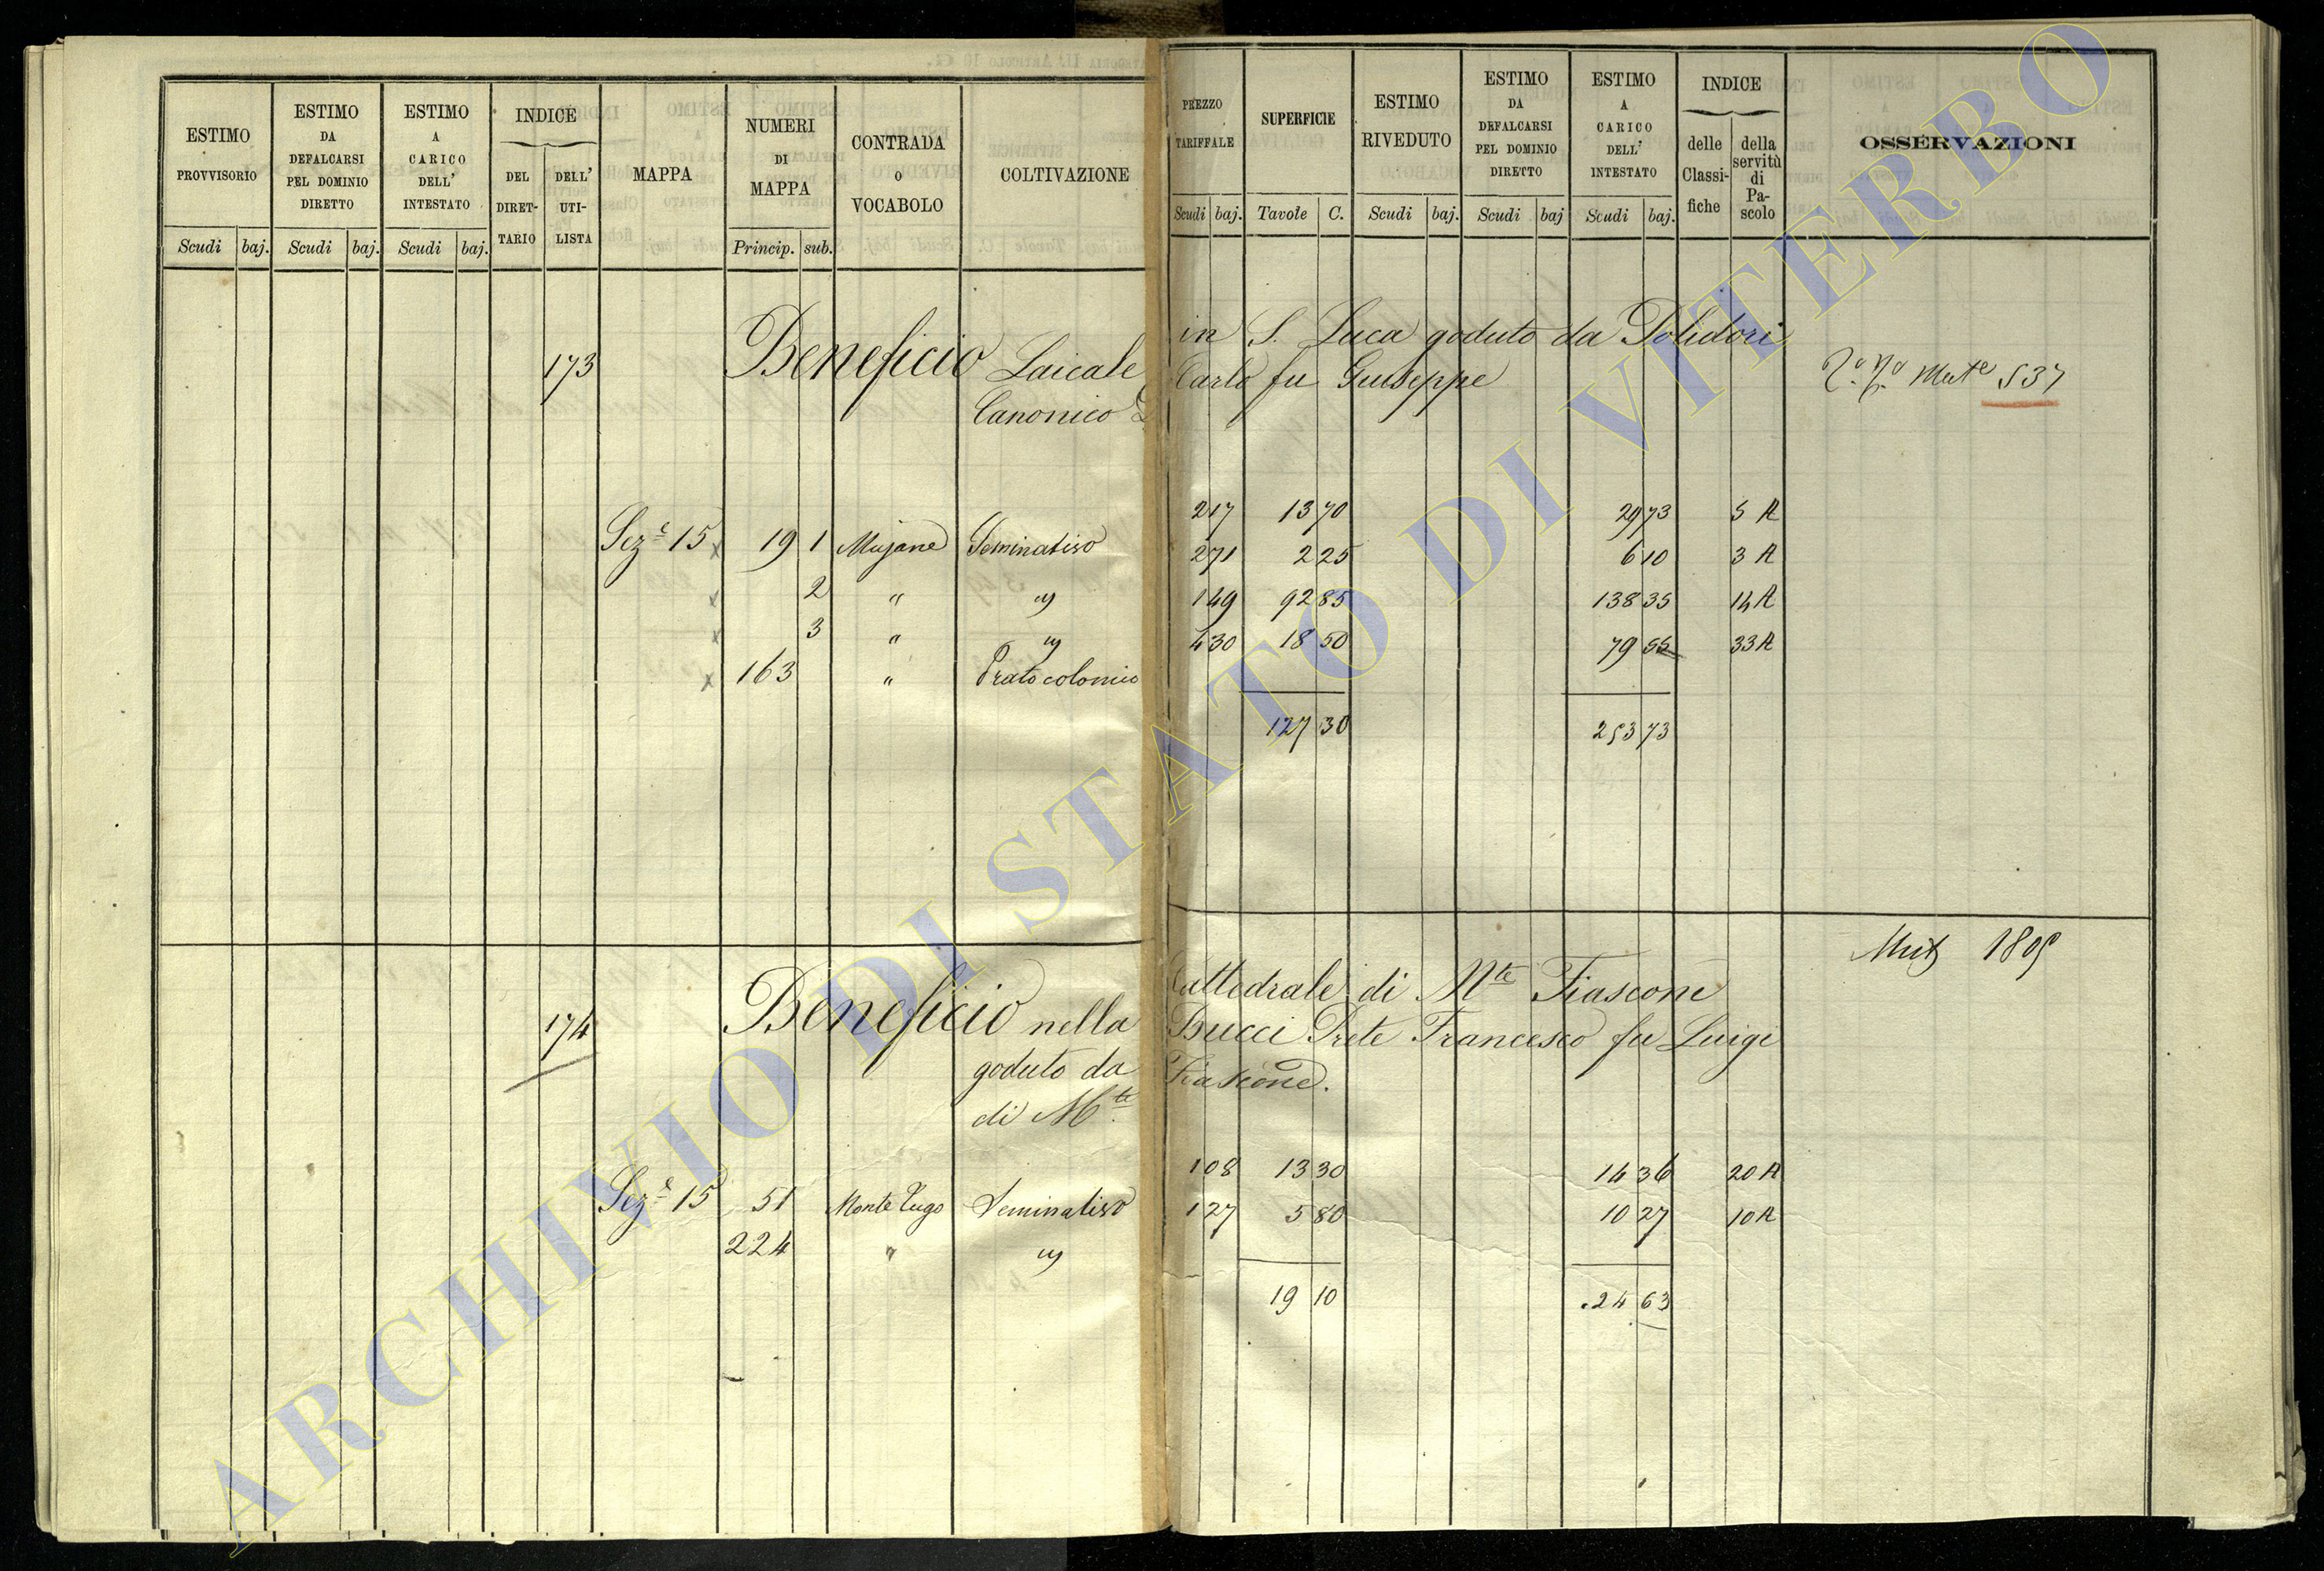 ESTIMO PROVVISORIO
Scudi baj.
ESTIMO DA DEFALCARSI PEL DOMINIO DIRETTO
Scudi baj.
ESTIMO A CARICO DELL' INTESTATO
Scudi baj.
INDICE
DEL DIRET-TARIO
DELL' UTI-LISTA
MAPPA
NUMERI DI MAPPA
Princip. sub.
CONTRADA O VOCABOLO
COLTIVAZIONE
PREZZO TARIFFALE
Scudi baj.
SUPERFICIE
Tavole C.
ESTIMO RIVEDUTO
Scudi baj.
ESTIMO DA DEFALCARSI PEL DOMINIO DIRETTO
Scudi baj
ESTIMO A CARICO DELL' INTESTATO
Scudi baj.
INDICE
delle Classi-fiche
della servitù di Pa-scolo
OSSERVAZIONI
173 Beneficio Laicale in S. Luca goduto da Polidori
Canonico Carlo fu Giuseppe
Mute 537
Sez.e 15 19 1 Mujane Seminativo 217 13 70 29 73 5 A
2 " " 271 2 25 6 10 3 A
3 " " 149 92 85 138 35 14 A
163 " Prato colonico 430 18 50 79 55 33 A
127 30 253 73
Mut 1805
174 Beneficio nella Cattedrale di Mte Fiascone
goduto da Bucci Prete Francesco fu Luigi
di Mte Fiascone.
Sez.e 15 51 Monte Lugo Seminativo 108 13 30 14 36 20 A
224 " " 127 5 80 10 27 10 A
19 10 24 63
ARCHIVIO DI STATO DI VITERBO